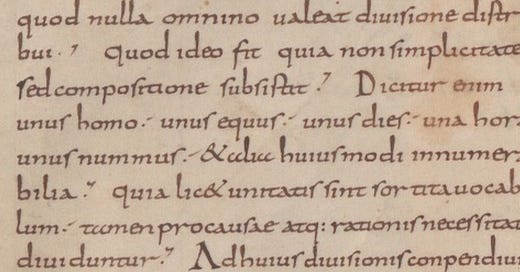 quod nulla omnino valeat divisione distr
bui. Quod ideo fit quia non simplicitate
sed compositione subsistit. Dicitur enim
unus homo. unus equus. unus dies. una hor
unus nummus. & alia huiusmodi innumer
bilia. quia lic& unitatis sint sortita vocab
lum. tamen pro causae atq: rationis necessitat
dividuntur. Ad huius divisionis conpendiu